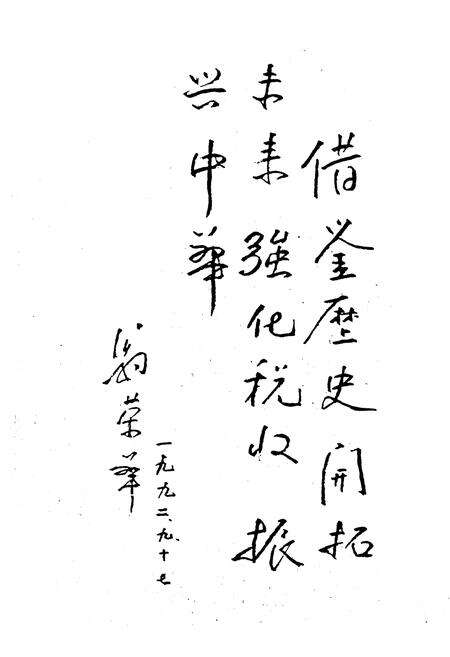 借鉴歷史開拓
未来強化税收振
兴中華
翁荣華
一九九二、九、十七